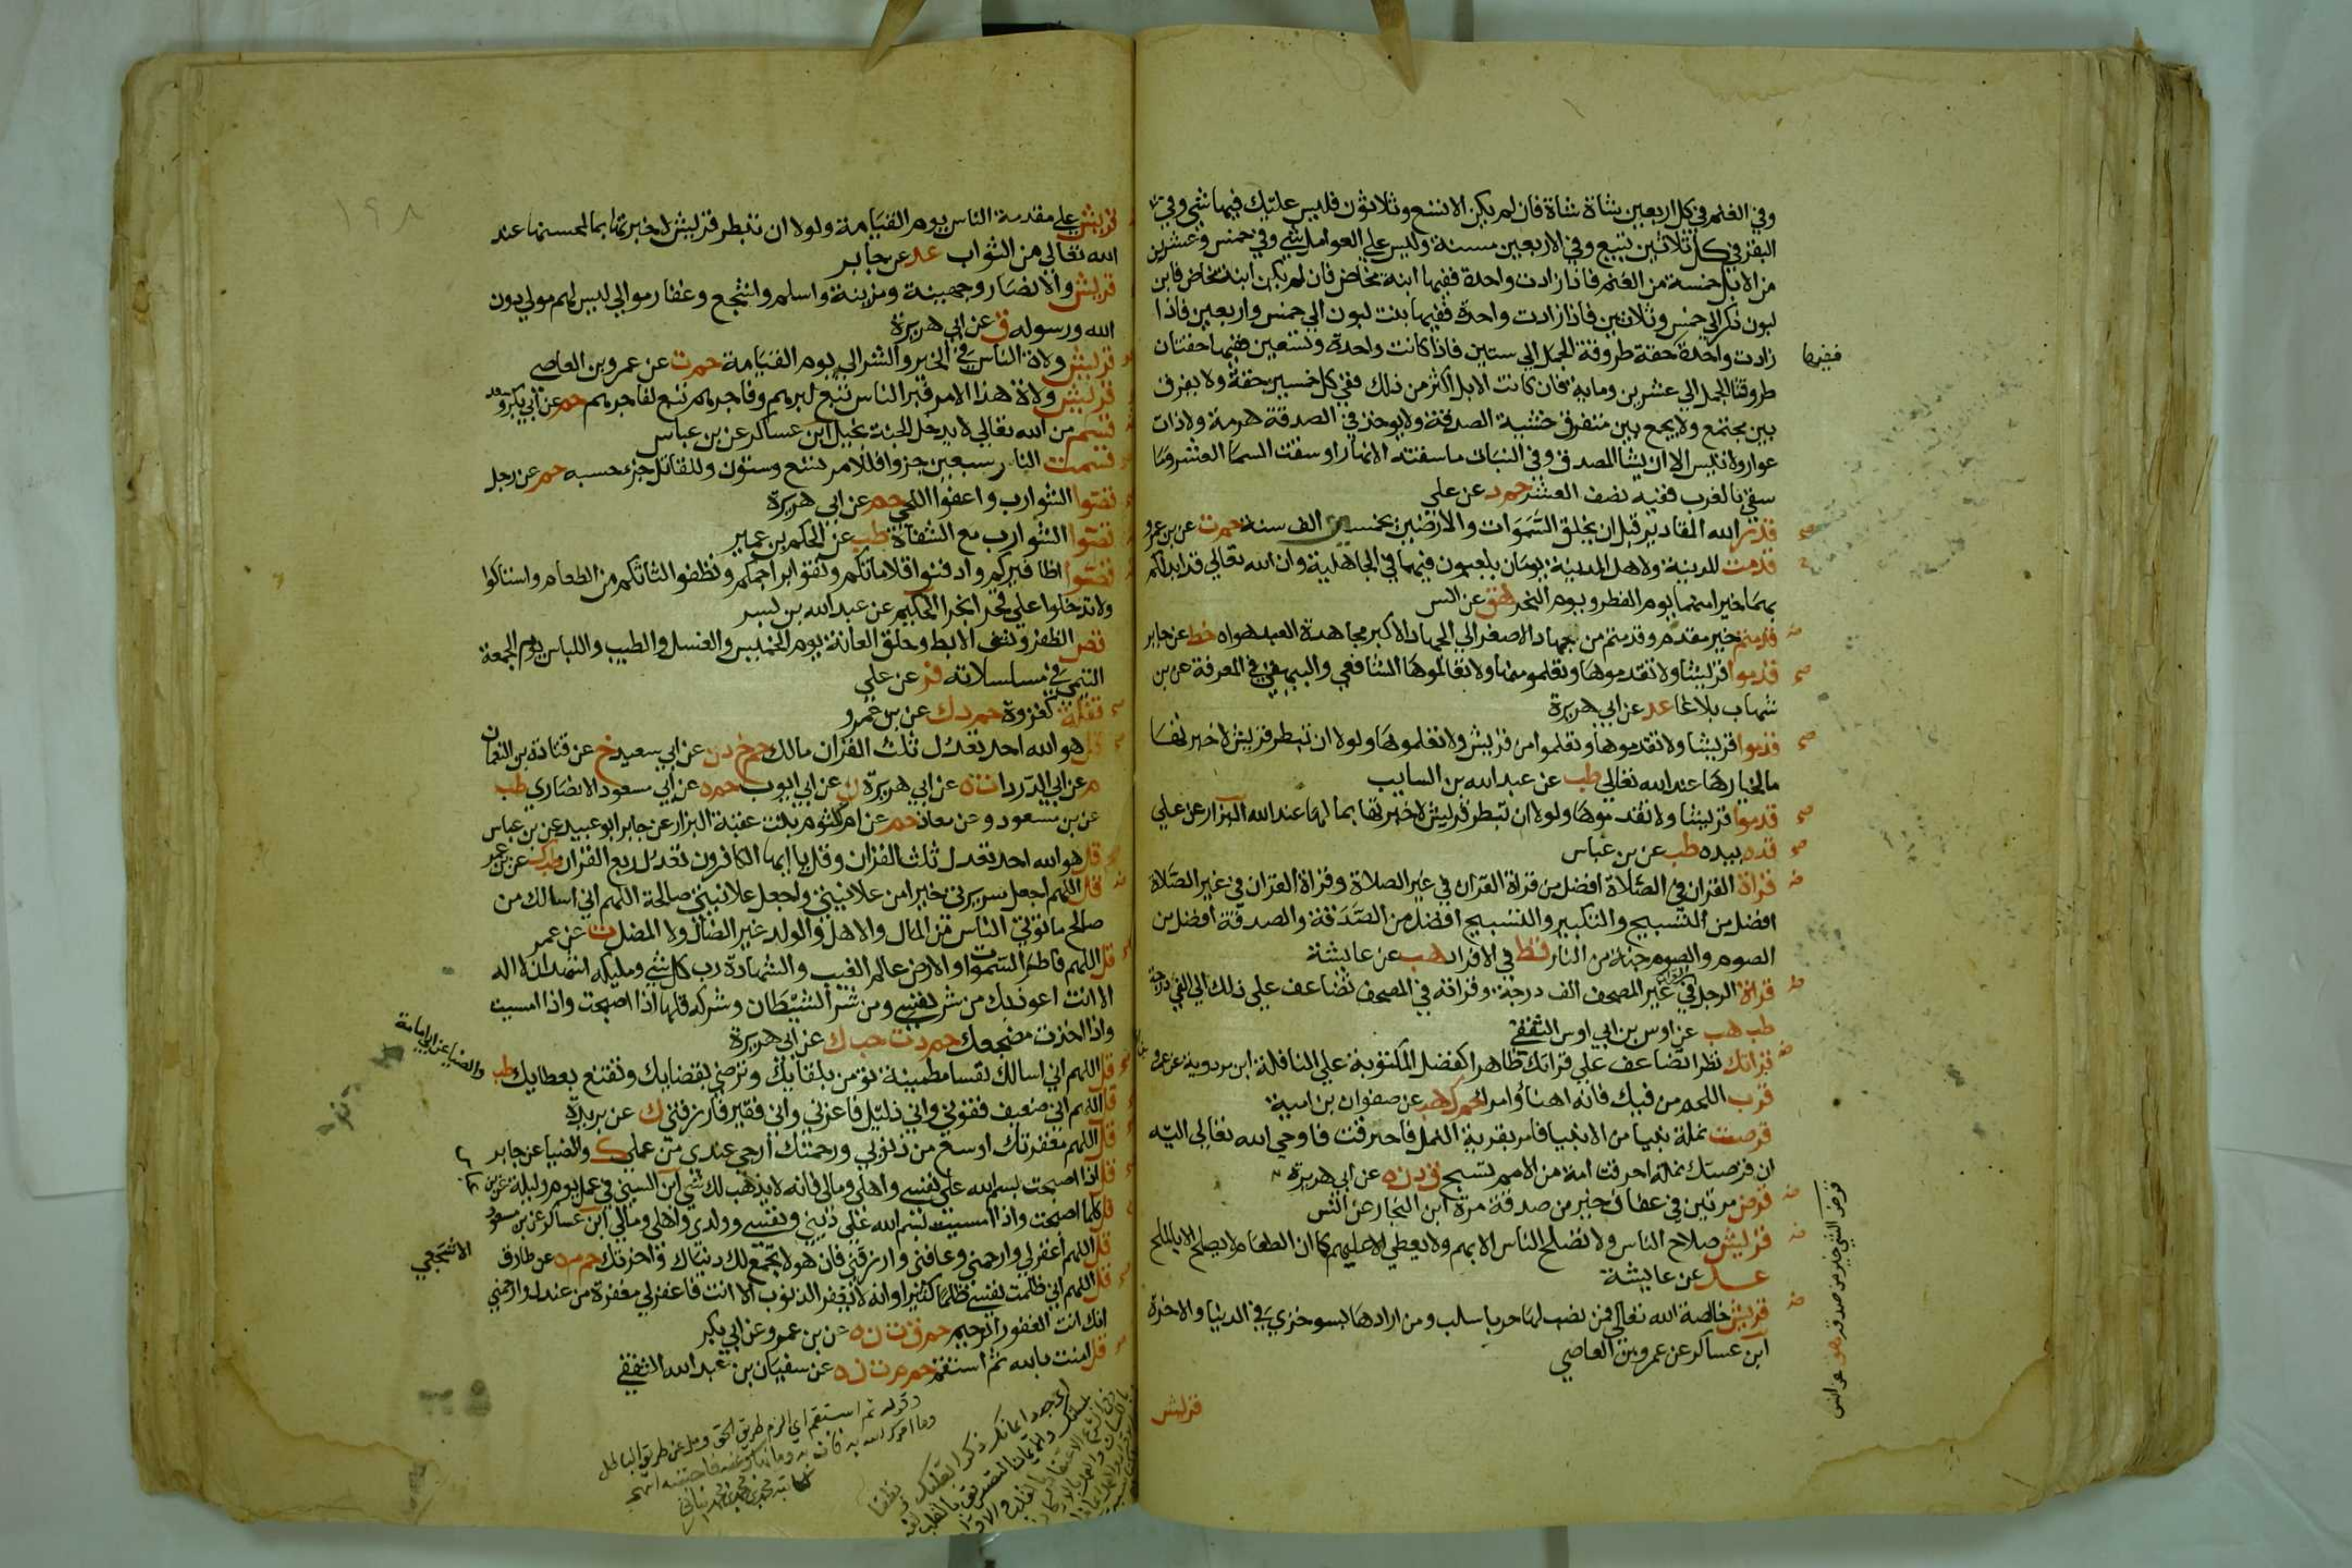 وفي الغنم في كل اربعين شاة شاة فان لم يكن الا تسع وثلاثون فليس عليك فيها شي وفي
البقر في كل ثلاثين تبيع وفي الاربعين مسنة وليس علي العوامل شي وفي خمس وعشرين
من الابل خمسة من الغنم فاذا زادت واحدة ففيها ابنة مخاض فان لم يكن ابنة مخاض فابن
لبون ذكر الي خمس وثلاثين فاذا زادت واحدة ففيها بنت لبون الي خمس واربعين فاذا
زادت واحدة حقة طروقة الجمل الي ستين فاذا كانت واحدة وتسعين ففيها حقتان
ففيها
طروقتا الجمل الي عشرين وماية فان كانت الابل اكثر من ذلك ففي كل خمسين حقة ولا يفرق
بين مجتمع ولا يجمع بين متفرق خشية الصدقة ولا يوخذ في الصدقة هرمة ولا ذات
عوار ولا تيس الا ان يشا المصدق وفي النبات ما سقته الانهار او سقت السما العشر وما
سقي بالغرب ففيه نصف العشر حم د عن علي
قدر الله المقادير قبل ان يخلق السموات والارضين بخمسين الف سنة حم ت عن بن عمرو
قدمت المدينة ولاهل المدينة يومان يلعبون فيهما في الجاهلية وان الله تعالي قد ابدلكم
بهما خيرا منهما يوم الفطر ويوم النحر هق عن انس
قدمتم خير مقدم وقدمتم من الجهاد الاصغر الي الجهاد الاكبر مجاهدة العبد هواه خط عن جابر
قدموا قريشا ولا تقدموها وتعلموا منها ولا تعالموها الشافعي والبيهقي في المعرفة عن بن
شهاب بلاغا عد عن ابي هريرة
قدموا قريشا ولا تقدموها وتعلموا من قريش ولا تعلموها ولولا ان تبطر قريش لاخبرتها
ما لخيارها عند الله تعالي طب عن عبد الله بن السايب
قدموا قريشا ولا تقدموها ولولا ان تبطر قريش لاخبرتها بما لها عند الله البزار عن علي
قده بيده طب عن بن عباس
قراة القران في الصلاة افضل من قراة القران في غير الصلاة وقراة القران في غير الصلاة
افضل من التسبيح والتكبير والتسبيح افضل من الصدقة والصدقة افضل من
الصوم والصوم جنة من النار قط في الافراد هب عن عايشة
قراة الرجل في غير المصحف الف درجة وقراته في المصحف تضاعف علي ذلك الي الفي درجة
طب هب عن اوس بن ابي اوس الثقفي
قراتك نظرا تضاعف علي قراتك ظاهرا كفضل المكتوبة علي النافلة ابن مردوية عن عمرو
قرب اللحم من فيك فانه اهنا وامرا حم ك هب عن صفوان بن امية
قرصت نملة نبيا من الانبيا فامر بقرية النمل فاحرقت فاوحي الله تعالي اليه
ان قرصتك نملة احرقت امة من الامم تسبح ق د ن ه عن ابي هريرة
قرض مرتين في عفاف خير من صدقة مرة ابن النجار عن انس
قرض الشي خير من صدقته هق عن انس
قريش صلاح الناس ولا تصلح الناس الا بهم ولا يعطي الا عليهم كما ان الطعام لا يصلح الا بالملح
عد عن عايشة
قريش خالصة الله تعالي فمن نصب لها حربا سلب ومن ارادها بسو خزي في الدنيا والاخرة
ابن عساكر عن عمرو بن العاصي
قريش
١٩٨
قريش علي مقدمة الناس يوم القيامة ولولا ان تبطر قريش لاخبرتها بما لمحسنها عند
الله تعالي من الثواب عد عن جابر
قريش والانصار وجهينة ومزينة واسلم واشجع وغفار موالي ليس لهم مولي دون
الله ورسوله ق عن ابي هريرة
قريش ولاة الناس في الخير والشر الي يوم القيامة حم ت عن عمرو بن العاصي
قريش ولاة هذا الامر فبر الناس تبع لبرهم وفاجرهم تبع لفاجرهم حم عن ابي بكر وسعد
قسم من الله تعالي لا يدخل الجنة بخيل ابن عساكر عن بن عباس
قسمت النار سبعين جزوا فللامر تسع وستون وللقاتل جز حسبه حم عن رجل
قصوا الشوارب واعفوا اللحي حم عن ابي هريرة
قصوا الشوارب مع الشفاه طب عن الحكم بن عمير
قصوا اظافيركم وادفنوا قلاماتكم ونقوا براجمكم ونظفوا لثاتكم من الطعام واستاكوا
ولا تدخلوا علي قحرا بخرا الحكيم عن عبد الله بن بسر
قص الظفر ونتف الابط وحلق العانة يوم الخميس والغسل والطيب واللباس يوم الجمعة
التيمي في مسلسلاته فر عن علي
قفلة كغزوة حم د ك عن بن عمرو
قل هو الله احد تعدل ثلث القران مالك حم خ د ن عن ابي سعيد خ عن قتادة بن النعمان
م عن ابي الدردا ت ه عن ابي هريرة ن عن ابي ايوب حم ه عن ابي مسعود الانصاري طب
عن بن مسعود وعن معاذ حم عن ام كلثوم بنت عقبة البزار عن جابر ابو عبيد عن بن عباس
قل هو الله احد تعدل ثلث القران وقل يا ايها الكافرون تعدل ربع القران طب ك عن بن عمر
قل اللهم اجعل سريرتي خيرا من علانيتي واجعل علانيتي صالحة اللهم اني اسالك من
صالح ما توتي الناس من المال والاهل والولد غير الضال ولا المضل ت عن عمر
قل اللهم فاطر السموات والارض عالم الغيب والشهادة رب كل شي ومليكه اشهد ان لا اله
الا انت اعوذ بك من شر نفسي ومن شر الشيطان وشركه قلها اذا اصبحت واذا امسيت
واذا اخذت مضجعك حم د ت حب ك عن ابي هريرة
قل اللهم اني اسالك نفسا مطمينة تومن بلقايك وترضي بقضايك وتقنع بعطايك طب
والضيا عن ابي امامة
قل اللهم اني ضعيف فقوني واني ذليل فاعزني واني فقير فارزقني ك عن بريدة
قل اللهم مغفرتك اوسع من ذنوبي ورحمتك ارجي عندي من عملي ك والضيا عن جابر
قل اذا اصبحت بسم الله علي نفسي واهلي ومالي فانه لا يذهب لك شي ابن السني في عمل يوم وليلة عن بن
قل كلما اصبحت واذا امسيت بسم الله علي ديني ونفسي وولدي واهلي ومالي ابن عساكر عن بن مسعود
قل اللهم اغفر لي وارحمني وعافني وارزقني فان هولا تجمع لك دنياك واخرتك حم م ه عن طارق
الاشجعي
قل اللهم اني ظلمت نفسي ظلما كثيرا وانه لا يغفر الذنوب الا انت فاغفر لي مغفرة من عندك وارحمني
انك انت الغفور الرحيم حم ق ت ن ه عن بن عمرو وعن ابي بكر
قل امنت بالله ثم استقم حم م ت ن ه عن سفيان بن عبد الله الثقفي
وقوله ثم استقم اي الزم طريق الحق ومل عن طريق الباطل